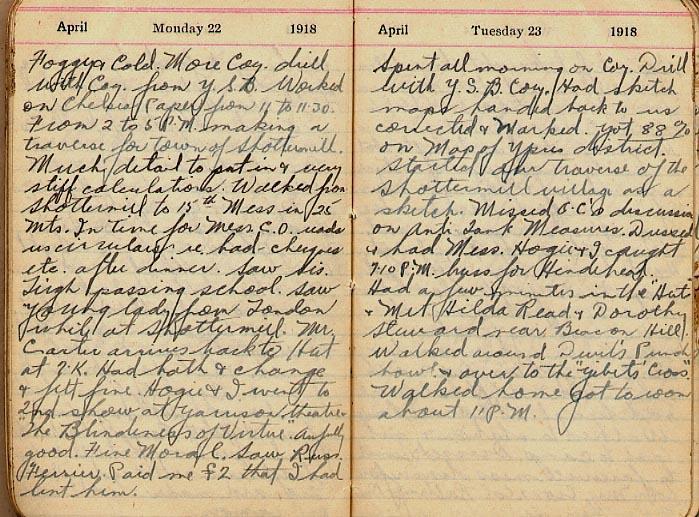 April Monday 22 1918
Foggy & Cold. More Coy. drill
with Coy. from Y.S.B. Worked
on Chelsea Paper from 11 to 11.30.
From 2 to 5 P.M. making a
traverse for town of Shottermill.
Much detail to put in & very
stiff calculations. Walked from
Shottermill to 15th Mess in 25
Mts. In time for Mess. C.O. reads
us circulars re bad cheques
etc. after dinner. Saw
passing school. Saw
young lady from London
while at Shottermill. Mr.
Carter arrives back to Hut
at 2.K. Had bath & change
& felt fine. Hogie & I went to
2nd show at Garrison theatre
"The Blindness of Virtue". Awfully
good. Fine Moral. Saw Russ.
Ferrier. Paid me £2 that I had
lent him.
April Tuesday 23 1918
Spent all morning on Coy. Drill
with Y.S.B. Coy. Had sketch
maps handed back to us
corrected & Marked. Got 88%
on Map of Ypres district.
Started our traverse of the
Shottermill village as a
sketch. Missed O.C's discussion
on Anti Tank Measures. Dressed
& had Mess. Hogie & I caught
7.10 P.M. buss for Hindehead.
Had a few minutes in the "Hut"
& Met Hilda Read & Dorothy
Steward near Beacon Hill
Walked around Devil's Punch
bowl & over to the "Gibets Cross"
Walked home got to room
about 11 P.M.